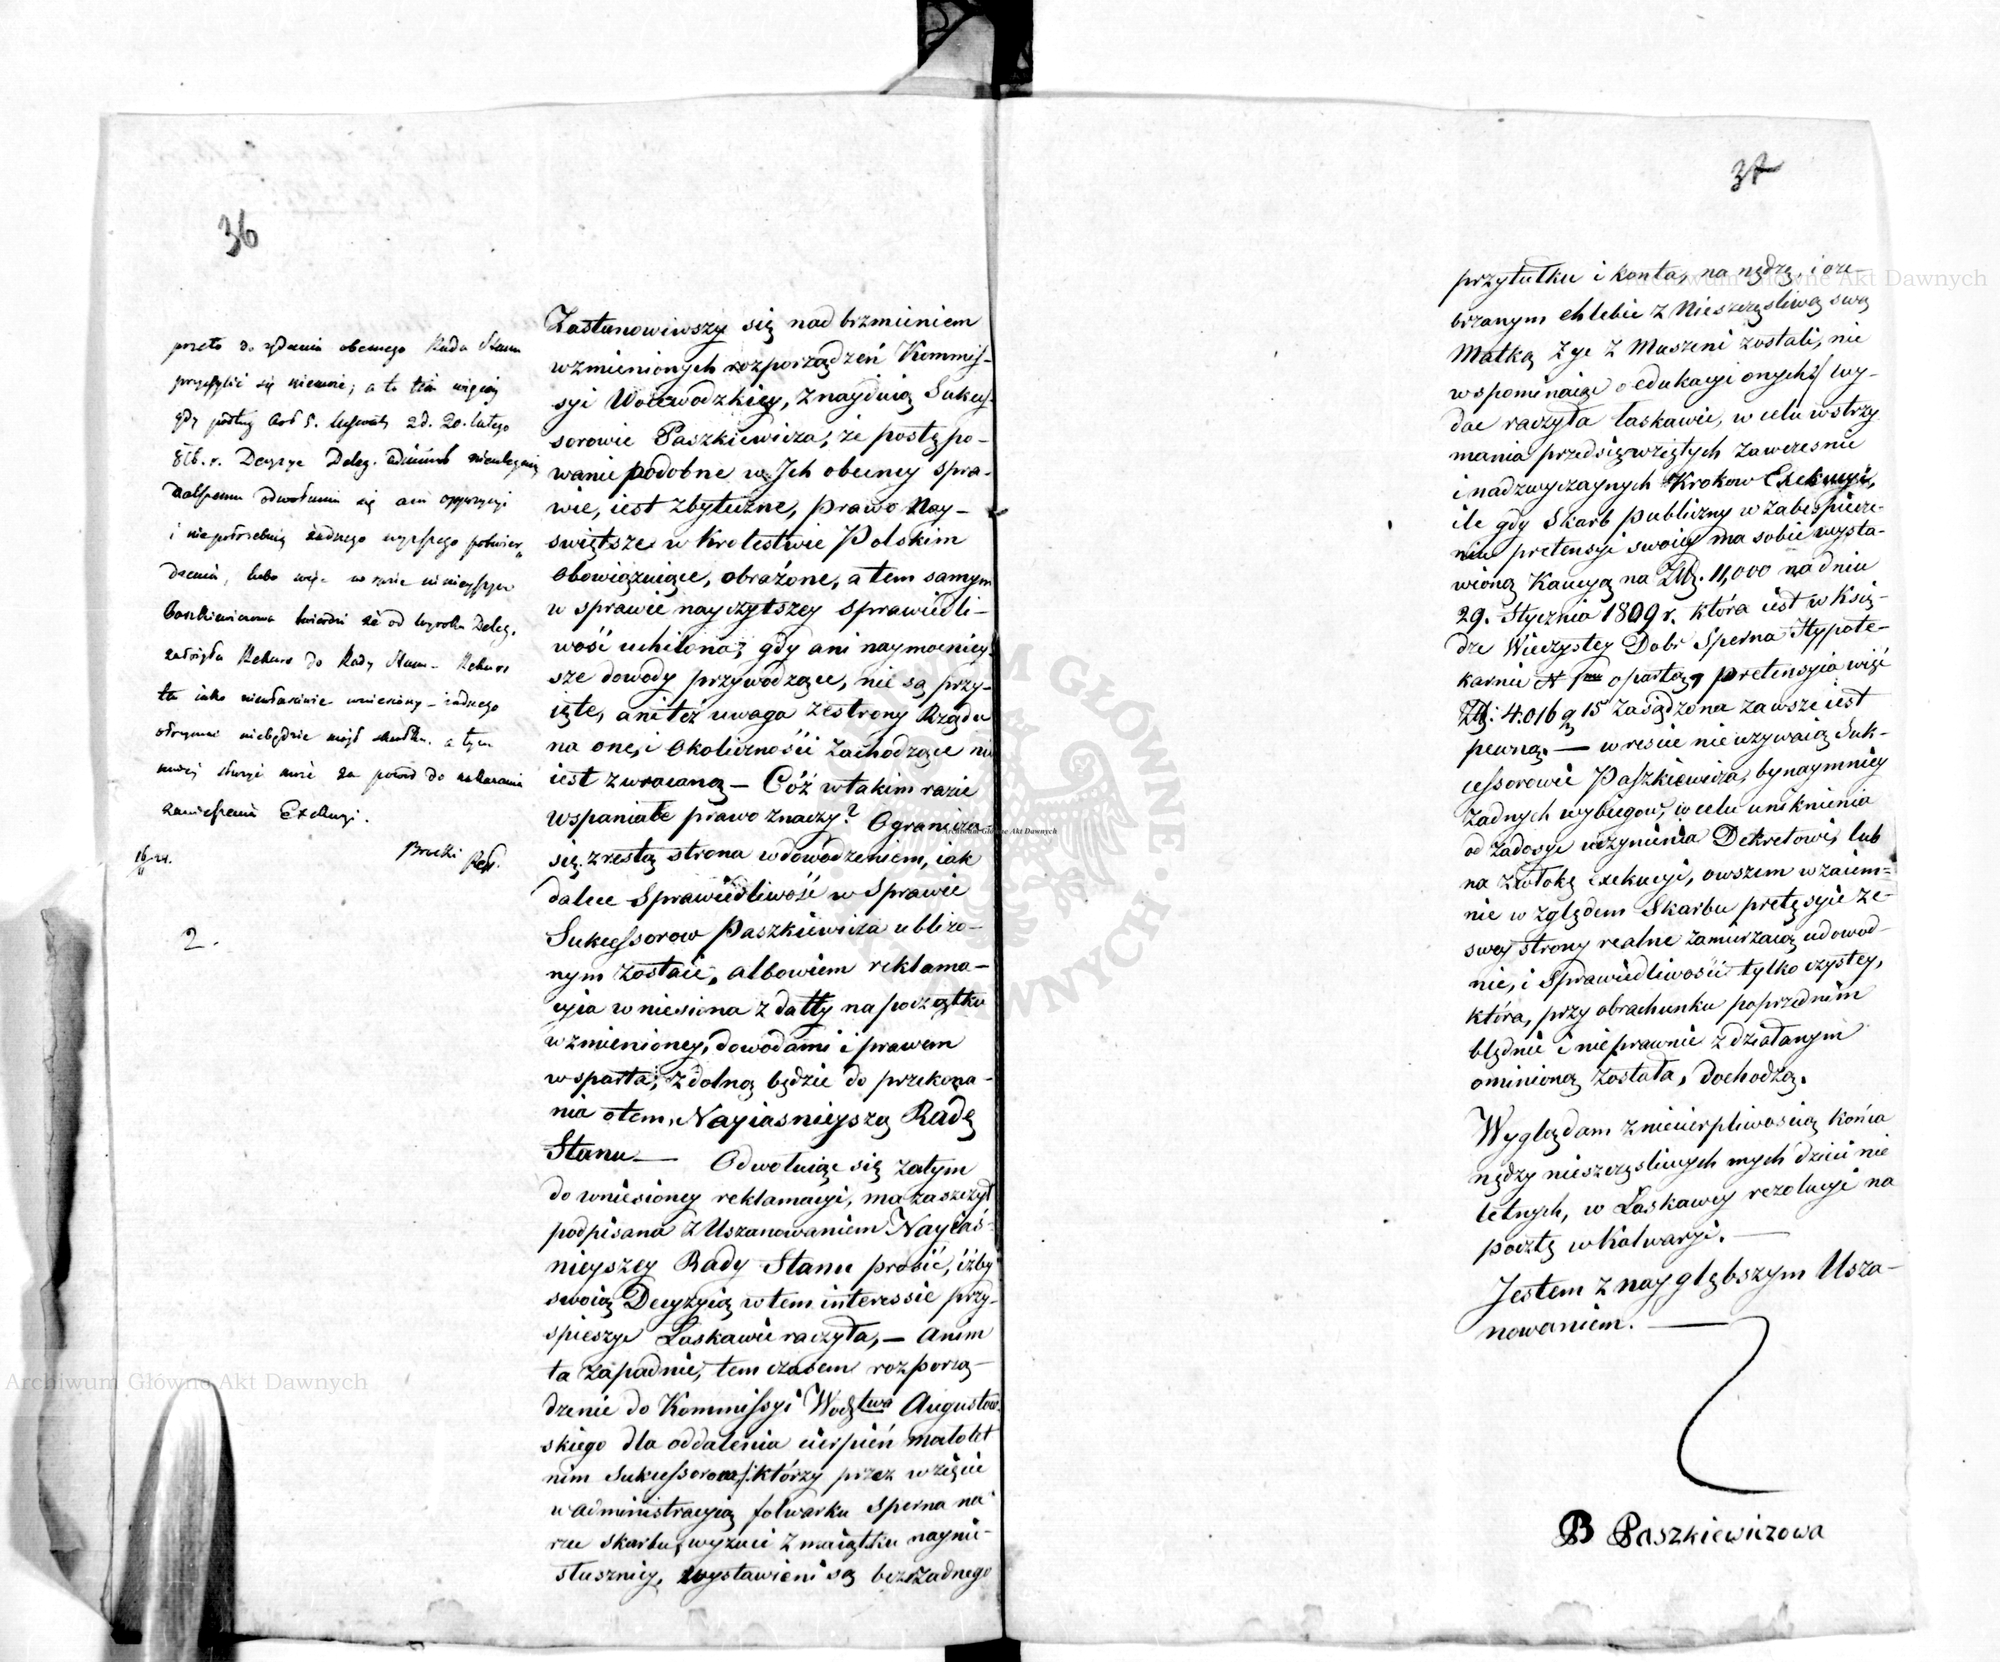 36
przeto do żądania obecnego Rada Stanu
przychylić się niemoże; a to tém więcey
gdy podług Art 5. Uchwały z d. 20. lutego
816. r. Decyzye Deleg. admin nieulegaią
dalszemu odwołaniu się ani oppozycyi
i niepotrzebuią żadnego wyższego potwier„
dzenia, lubo więc w razie ninieyszym
Paszkiewiczowa twierdzi że od Wyroku Deleg.
założyła Rekurs do Rady Stanu – Rekurs
ten iako niewłaściwie wniesiony – żadnego
otrzymać niebędzie mógł skutku. a tym
mniey służyć może za powód do nakazania
zawieszenia Exekucyi.
2.
Zastanowiwszy się nad brzmieniem
wzmienionych rozporządzeń Kommis-
syi Woiewodzkiey, znayduią Sukces-
sorowie Paszkiewicza, że postępo-
wanie podobne w Ich obecney spra-
wie, iest zbyteczne, prawo Nay-
świętsze w Krolestwie Polskim
obowiązuiące, obrażone, a tem samym
w sprawie nayczytszey sprawiedli-
wość uchilona; gdy ani naymocniey-
sze dowody przywodzące, nie są przy-
ięte, ani też uwaga ze strony Rządu
na one, i okoliczności zachodzące nie
iest zwracaną — Cóż w takim razie
wspaniałe prawo znaczy? Ogranicza
się zresztą strona w dowodzeniem, iak
dalece Sprawiedliwość w Sprawie
Sukcessorow Paszkiewicza ubliżo-
nym zostaie, albowiem reklama-
cyia wniesiona z datty na początku
wzmienioney, dowodami i prawem
wsparta, zdolną będzie do przekona-
nia o tem, Nayiasnieyszą Radę
Stanu — Odwołuiąc się zatym
do wniesioney reklamacyi, ma zaszczyt
podpisana z Uszanowaniem Nayiaś-
nieyszey Rady Stanu prosić, iżby
swoią Decyzyią w tem interessie przy-
spieszyć Łaskawie raczyła, — a nim
ta zapadnie, tem czasem rozporzą-
dzenie do Kommissyi Wodztwa Augustow-
skiego dla oddalenia cierpień małolet
nim Sukcessorom /: którzy przez wzięcie
w administracyią folwarku Sperna na
rzec skarbu, wyzuci z maiątku nayniе-
słuszniey, wystawieni są bez żadnego
37
przytułku i konta, na nędzę, i oże-
brzanym chlebie z Nieszczęsliwą swą
Matką żyć z Muszeni zostali, nie
wspominaiąc o edukacyi onych :/ wy-
dac raczyła łaskawie, w celu wstrzy
mania przedsięwziętych zawczesnie
i nadzwyczaynych Krokow Exekucyi,
ile gdy Skarb publiczny w zabespiecze-
niu pretensyi swoiey ma sobie wysta-
wioną Kaucyą na Złp. 11,000 na dniu
29. Stycznia 1809 r. która iest w Ksią-
dze Wieczystey Dobr Sperna Hypote-
karnie N 1mo opartą, pretensyia więc
Złp. 4.016 g 15 zasądzona zawsze iest
pewną. — w resccie nie używaią Suk-
cessorowie Paszkiewicza, bynaymniey
żadnych wybiegow, w celu uniknienia
od zadosyc uczynienia Dekretowi, lub
na zwłokę Exekucyi, owszem wzaiem-
nie względem Skarbu pretęsyie ze
swey strony realne zamierzaią udowod-
nic, i Sprawiedliwości tylko czystey,
która, przy obrachunku poprzednim
błędnie i nieprawnie z działanym
ominioną została, dochodzą.
Wyględam z niecierpliwoscią końca
nędzy nieszczęsliwych mych dzieci nie
letnych, w Łaskawey rezolucyi na
pocztę w Kalwaryi. —
Jestem z naygłębszym Usza-
nowaniem. —
B Paszkiewiczowa
Archiwum Główne Akt Dawnych
Archiwum Główne Akt Dawnych
Archiwum Główne Akt Dawnych